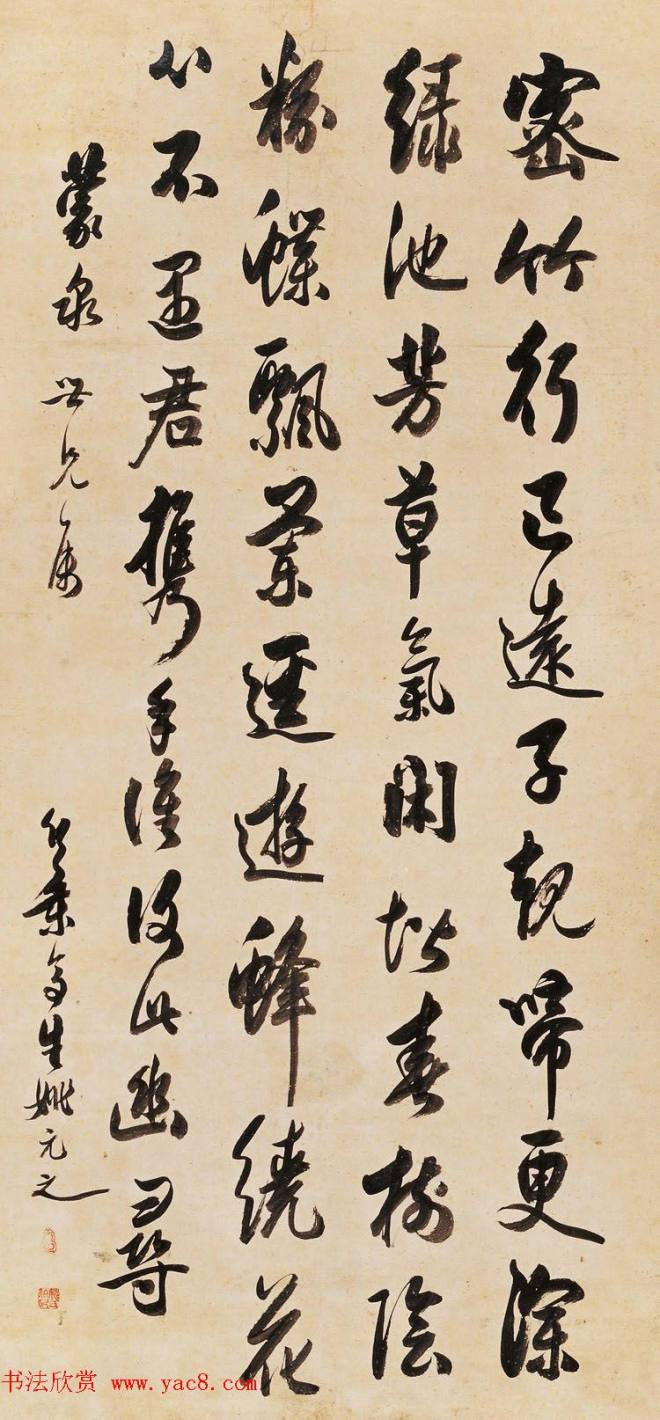 密竹行已遠子規啼更深
綠池芳草氣閑春樹陰
粉蝶飄蘭逕遊蜂繞花
心不遇君攜手誰復此幽尋
蒙泉世兄屬
竹葉亭生姚元之
书法欣赏 www.yac8.com